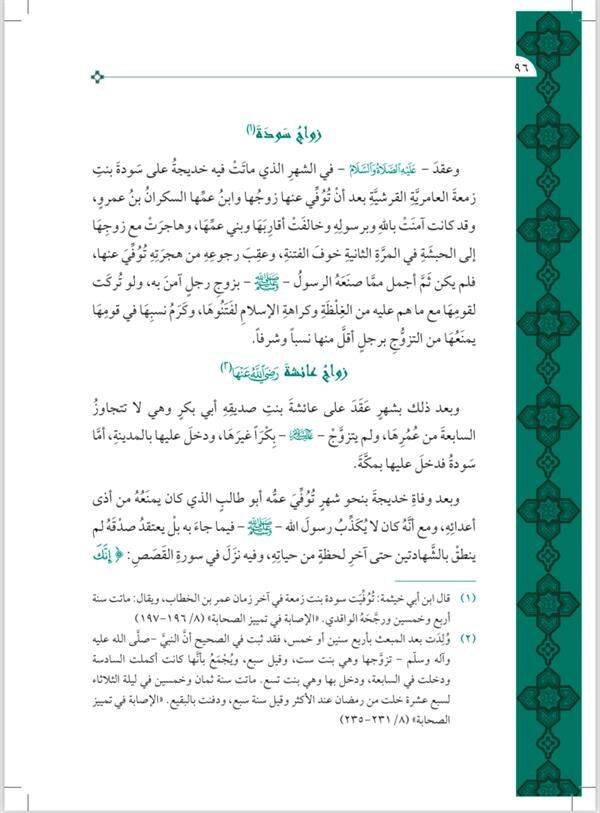 ٩٦
زواج سَودَةَ(١)
وعقدَ – عَلَيْهِ الصَّلَاةُ وَالسَّلَامُ – في الشهرِ الذي ماتَتْ فيه خديجةُ على سَودةَ بنتِ
زمعةَ العامريَّةِ القرشيَّةِ بعد أنْ تُوُفِّيَ عنها زوجُها وابنُ عمِّها السكرانُ بنُ عمرٍو،
وقد كانت آمنَتْ باللهِ وبرسولِهِ وخالفَتْ أقاربَهَا وبني عمِّهَا، وهاجرَتْ مع زوجِهَا
إلى الحبشَةِ في المرَّةِ الثانيةِ خوفَ الفتنةِ، وعقِبَ رجوعِهِ من هجرَتِهِ تُوُفِّيَ عنها،
فلم يكن ثَمَّ أجمل ممَّا صنَعَهُ الرسولُ – ﷺ – بزوجِ رجلٍ آمنَ به، ولو تُركَت
لقومِهَا مع ما هم عليه من الغِلظَةِ وكراهةِ الإسلامِ لفَتَنُوهَا، وكَرَمُ نسبِهَا في قومِهَا
يمنَعُهَا من التزوُّجِ برجلٍ أقلَّ منها نسباً وشرفاً.
زواج عائشة رَضِيَ اللَّهُ عَنْهَا(٢)
وبعد ذلك بشهرٍ عَقَدَ على عائشةَ بنتِ صديقِهِ أبي بكرٍ وهي لا تتجاوزُ
السابعةَ من عُمُرِهَا، ولم يتزوَّجْ – ﷺ – بِكْرَاً غيرَهَا، ودخلَ عليها بالمدينةِ، أمَّا
سَودةُ فدخلَ عليها بمكَّةَ.
وبعد وفاةِ خديجةَ بنحوِ شهرٍ تُوُفِّيَ عمُّه أبو طالبٍ الذي كان يمنَعُهُ من أذى
أعدائِهِ، ومع أنَّهُ كان لا يُكَذِّبُ رسولَ الله – ﷺ – فيما جاءَ به بلْ يعتقدُ صدْقَهُ لم
ينطقْ بالشَّهادتين حتى آخرِ لحظةٍ من حياتِهِ، وفيه نزَلَ في سورةِ القَصَصِ: ﴿ إِنَّكَ
(١) قال ابن أبي خيثمة: تُوُفِّيَت سودة بنت زمعة في آخر زمان عمر بن الخطاب، ويقال: ماتت سنة
أربع وخمسين ورجَّحَهُ الواقدي. «الإصابة في تمييز الصحابة» (٨/ ١٩٦-١٩٧)
(٢) وُلِدَت بعد المبعث بأربع سنين أو خمس، فقد ثبت في الصحيح أنَّ النبيَّ –صلَّى الله عليه
وآله وسلّم – تزوَّجها وهي بنت ست، وقيل سبع، ويُجْمَعُ بأنَّها كانت أكملت السادسة
ودخلت في السابعة، ودخل بها وهي بنت تسع. ماتت سنة ثمان وخمسين في ليلة الثلاثاء
لسبع عشرة خلت من رمضان عند الأكثر وقيل سنة سبع، ودفنت بالبقيع. «الإصابة في تمييز
الصحابة» (٨/ ٢٣١-٢٣٥)